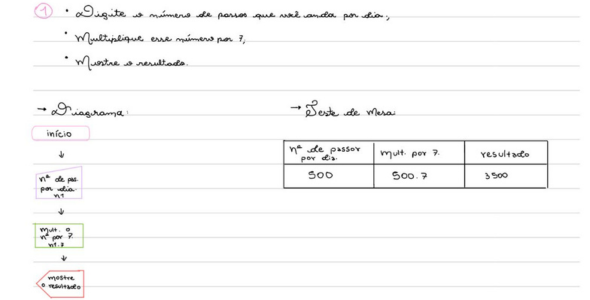 1 • Digite o número de passos que você anda por dia;
• Multiplique esse número por 7;
• Mostre o resultado.
→ Diagrama:
início
↓
nº de pas.
por dia
n1
↓
mult. o
nº por 7.
n1.7
↓
mostre
o resultado
→ Teste de Mesa:
nº de passos
por dia.
mult. por 7.
resultado
500
500.7
3500